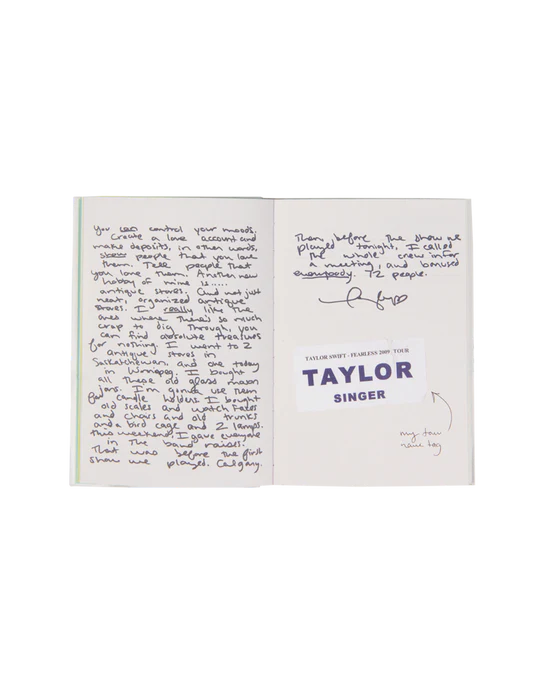 You can control your moods.
Create a love account and
make deposits, in other words,
show people that you love
them. Tell people that
you love them. Another new
hobby of mine is.....
antique stores. And not just
neat, organized antique
stores. I really like the
ones where there's so much
crap to dig through, you
can find absolute treasures
for nothing. I went to 2
antique stores in
Saskatchewan, and one today
in Winnipeg. I bought
all these old glass mason
jars. I'm gonna use them
for candle holders. I bought
old scales and watch faces
and chairs and old trunks
and a bird cage and 2 lamps.
this weekend, I gave everyone
in the band raises.
That was before the first
show we played. Calgary.
Then, before the show we
played tonight, I called
the whole crew in for
a meeting, and bonused
everybody. 72 people.
TAYLOR SWIFT - FEARLESS 2009 TOUR
TAYLOR
SINGER
my tour
name tag